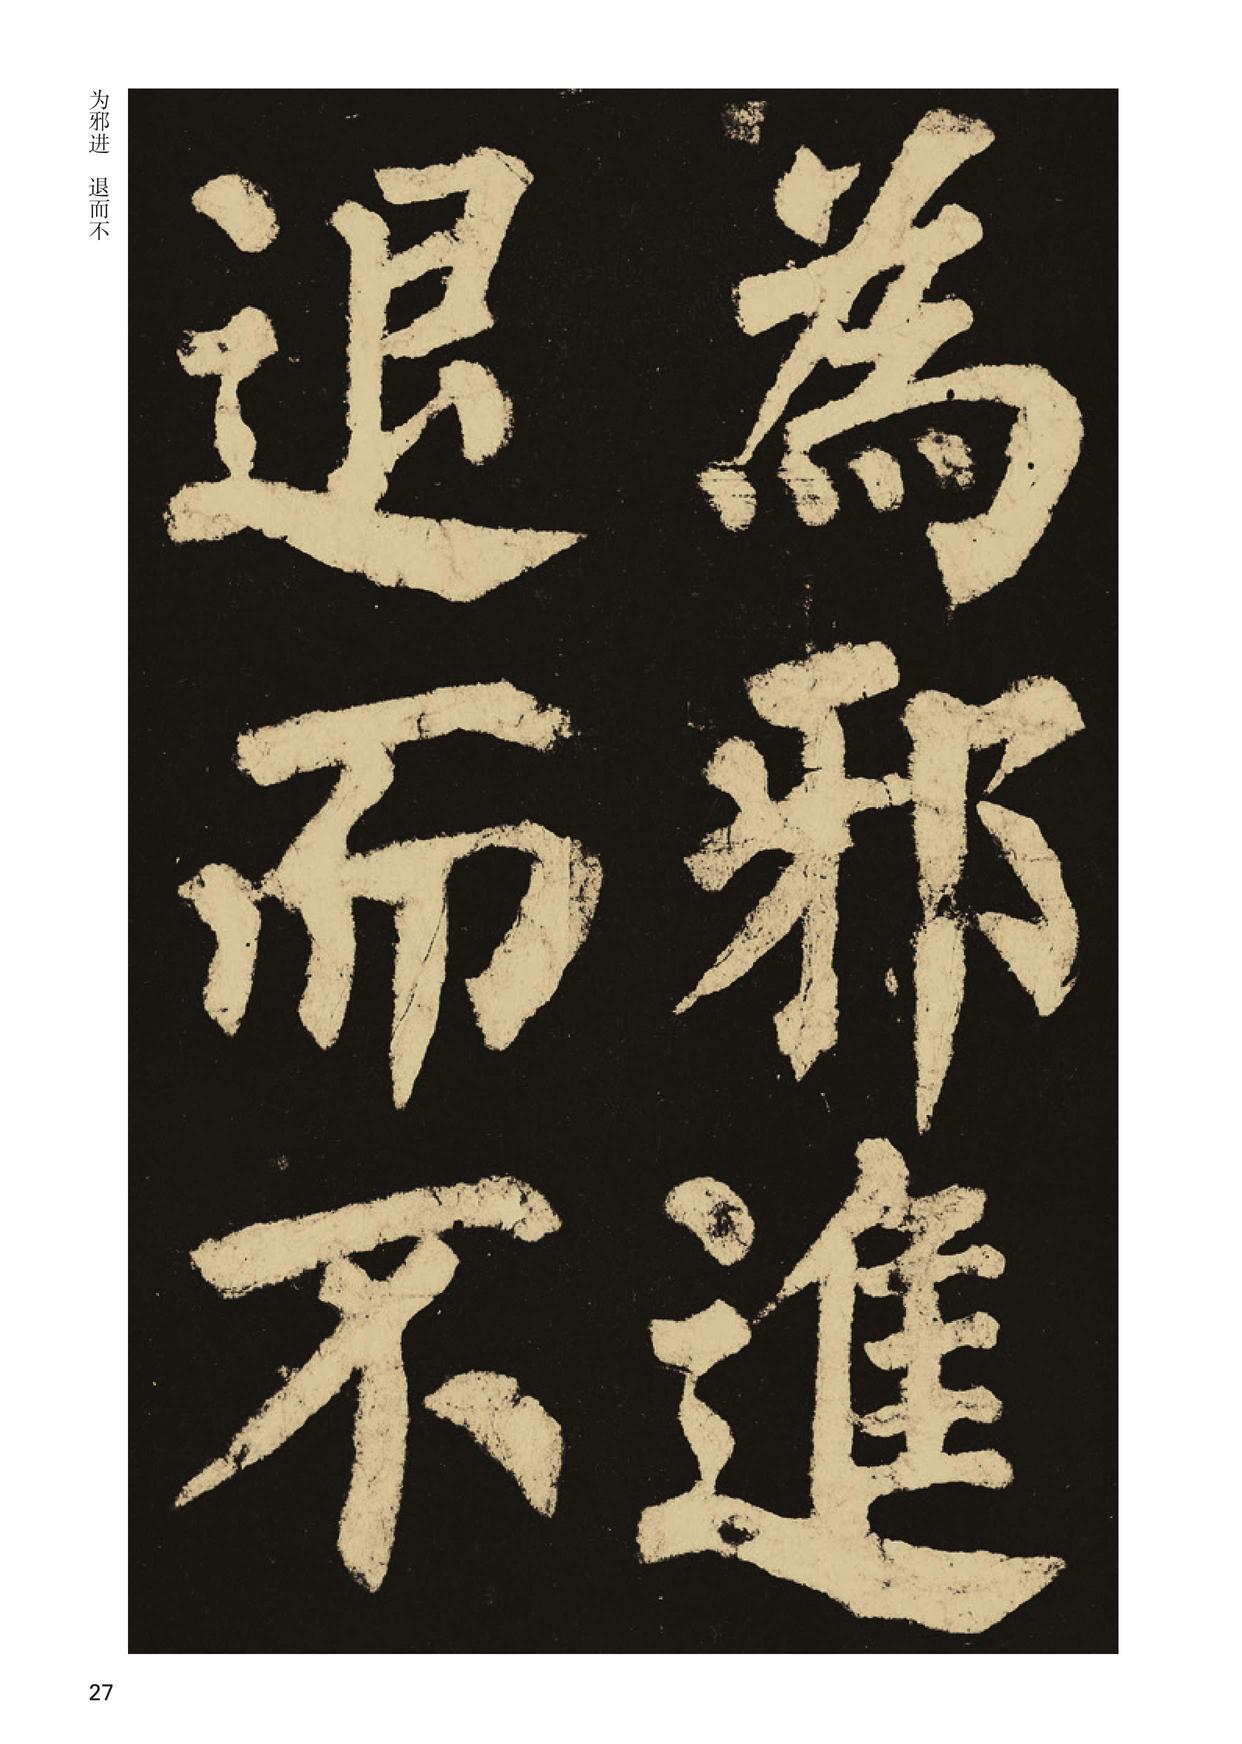 為邪進
退而不
为邪进 退而不
27